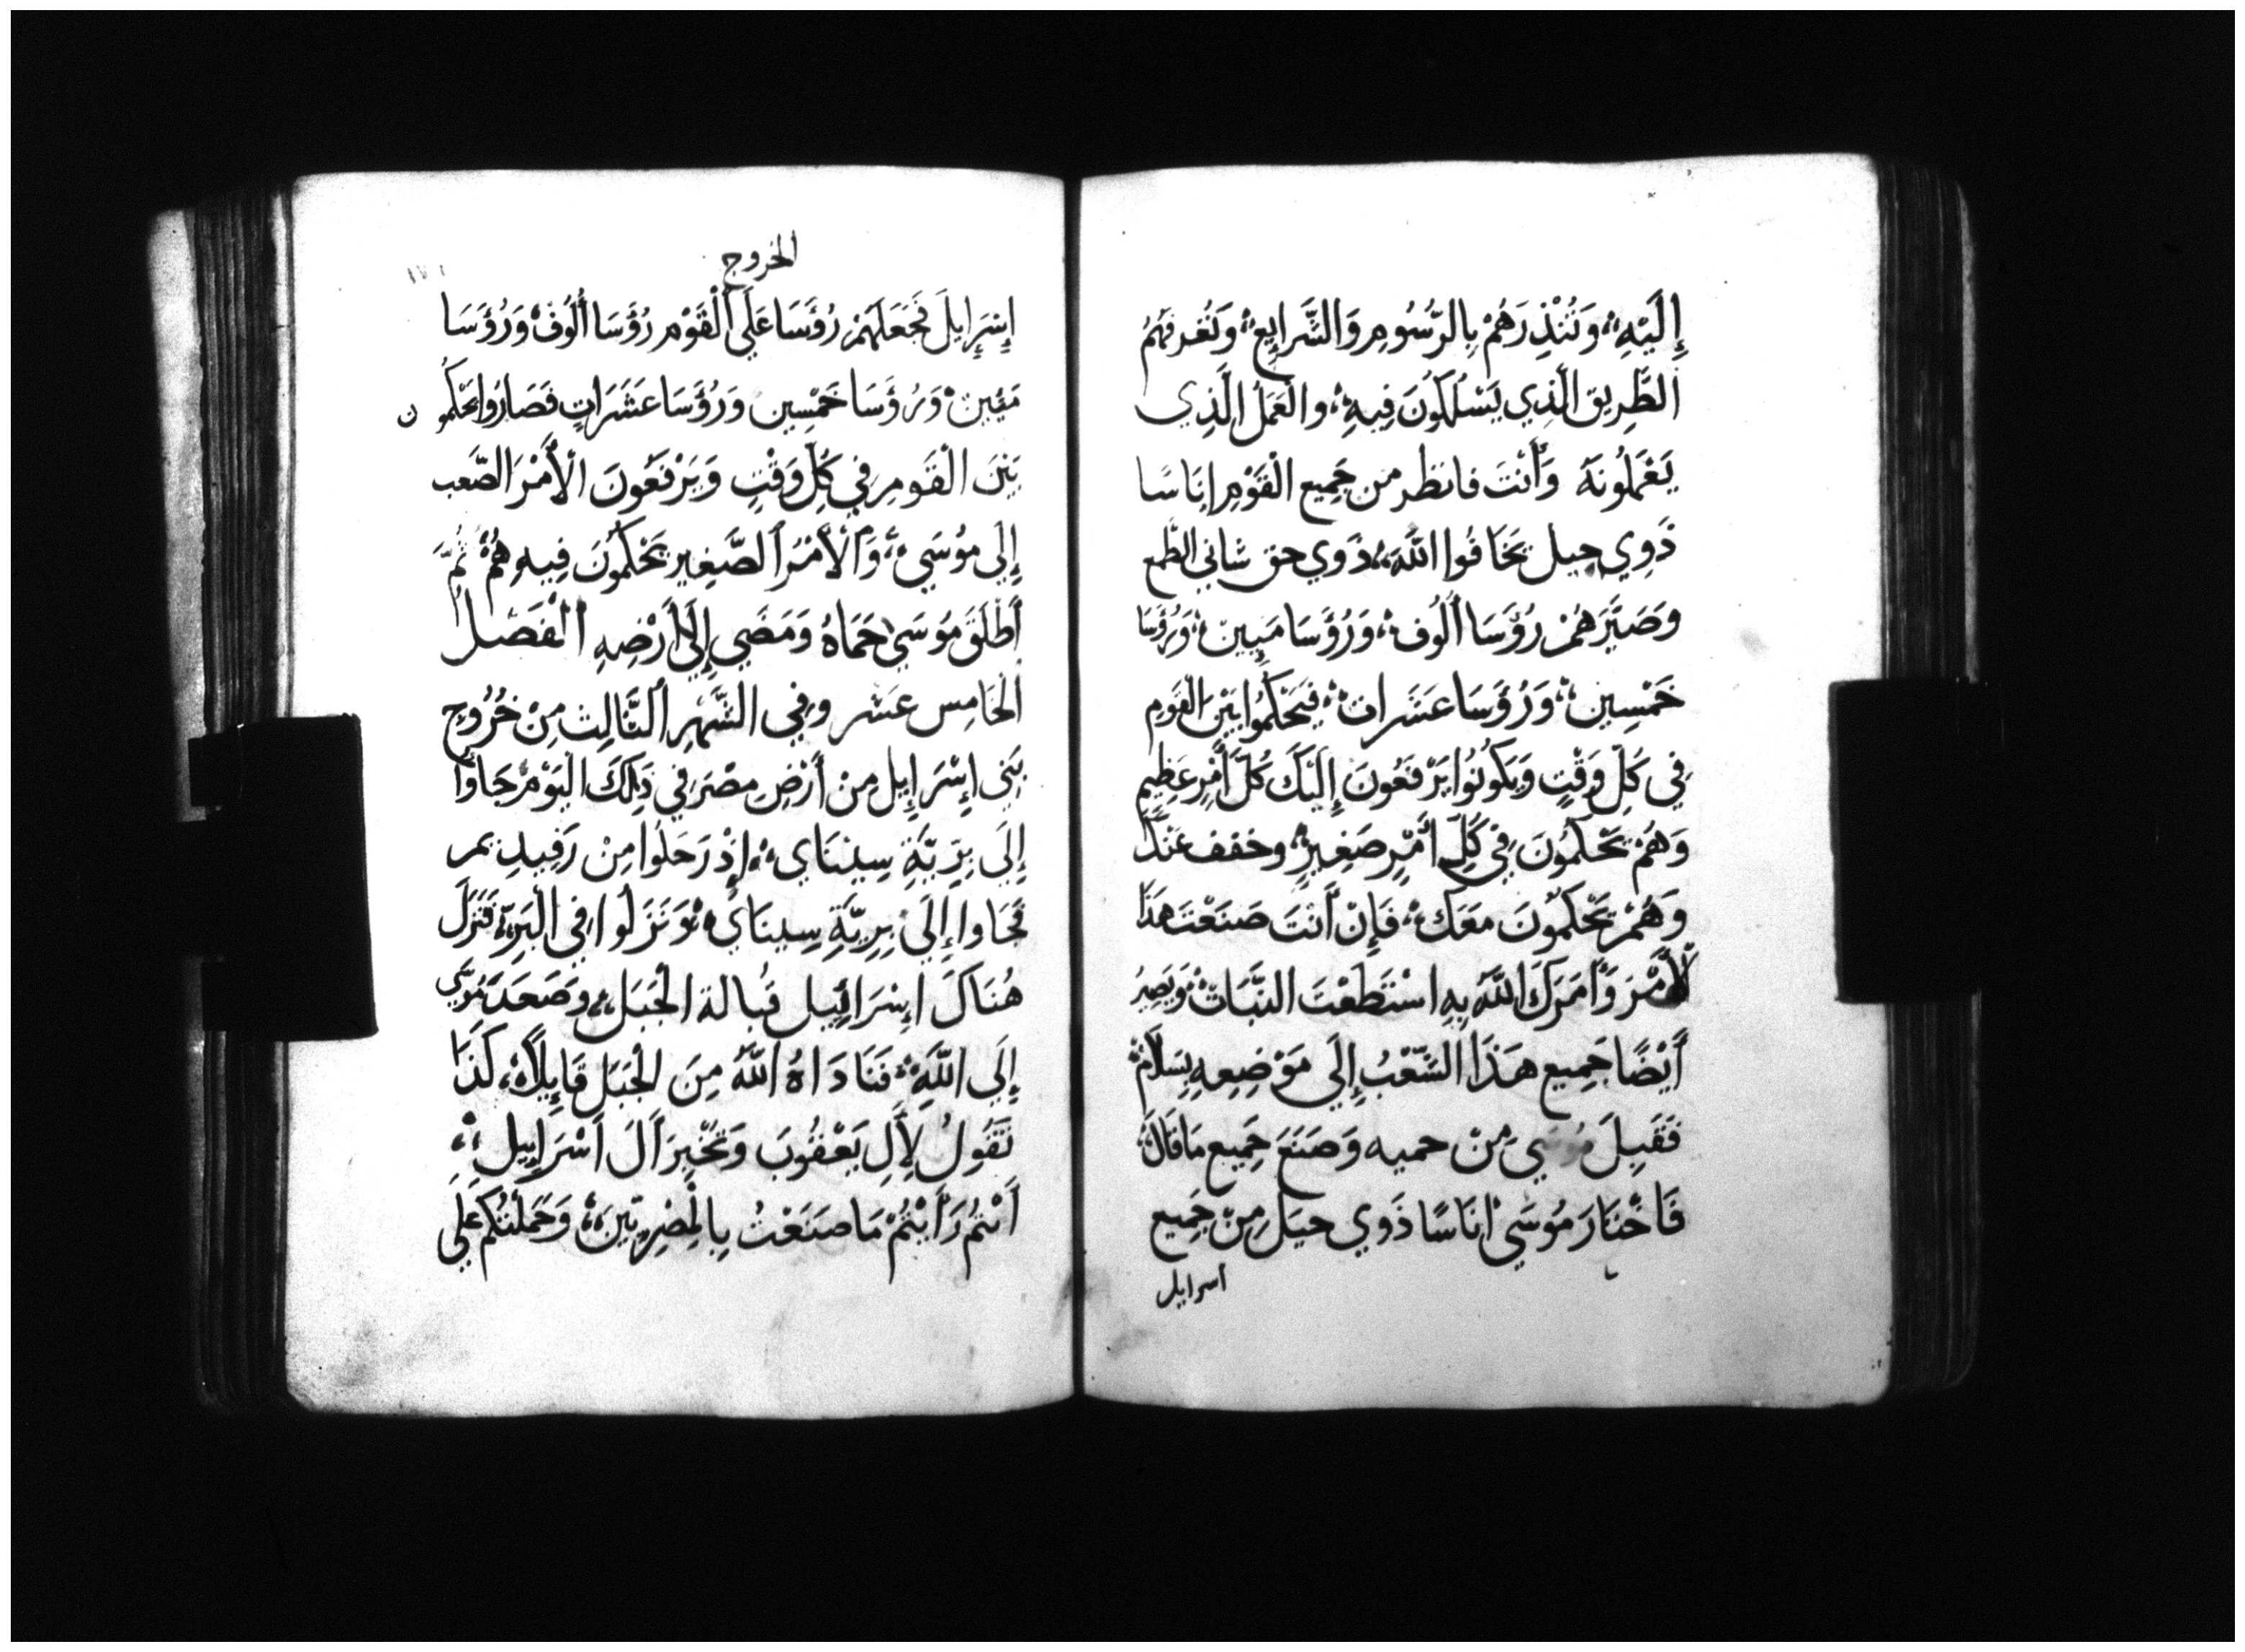 إِلَيْهِ، وَتُنْذِرَهُمْ بِالرُّسُومِ وَالشَّرَايِعِ، وَتُعَرِفَهُمُ
الطَّرِيق الَّذِي يَسْلُكُونَ فِيهِ، والْعَمَلُ الَّذِي
يَعْمَلُونَهُ وَأَنْتَ فانظر من جَمِيع الْقَوْمِ انَاسًا
ذَوِي حيل يَخَافُوا اللَّهَ، ذَوي حق شاني الطمع
وَصَيِّرَهُمْ رُؤَسَا أُلُوف، وَرُؤَسَا مَيِين، وَرُؤَسَا
خَمْسِين، وَرُؤَسَا عَشَرات، فَيَحْكُمُوا بَيْنَ الْقَومِ
فِي كُلِّ وَقْتٍ وَيَكُونُوا يَرْفَعُونَ إِلَيْكَ كُلَّ أَمْرٍ عَظِيمٍ
وَهُمْ يَحْكُمُونَ فِي كُلِّ أَمْرٍ صَغِيرٍ، وخفف عَنْكَ
وَهُمْ يَحْكُمُونَ مَعَكَ، فَإِنْ أَنْتَ صَنَعْتَ هَذَا
الْأَمْرَ وَأَمَرَكَ اللَّهُ بِهِ اسْتَطَعْتَ الثَّبَاتْ، وَيَصِيرُ
أَيْضًا جَمِيع هَذَا الشَّعْبُ إِلَي مَوْضِعِهِ بِسَلَامْ
فَقَبِلَ مُوسَي مِنْ حميه وَصَنَعَ جَمِيع مَا قَالَ،
فَاخْتَارَ مُوسَي انَاسًا ذَوي حيَل مِنْ جَمِيع
اسرايل
الخروج
إِسْرَايِلَ فَجَعَلَهُمْ رُؤَسَا عَلَي الْقَوْم رُؤَسَا أُلُوفْ وَرُؤَسَا
مَيِينْ وَرُؤَسَا خَمْسِين وَرُؤَسَا عَشَرَاتٍ فَصَارُوا يَحْكُمُون
بَيْنَ الْقَومِ فِي كُلِّ وَقْتٍ وَيَرْفَعُونَ الْأَمْرَ الصَّعب
إِلَي مُوسَي، وَالْأَمْرُ الصَّغِير يَحْكُمُونَ فِيهِ هُمْ ثُمَّ
أَطْلَقَ مُوسَي حَمَاهُ وَمَضَي إِلَي أَرْضِهِ الْفَصْلُ
الْخَامِس عَشر وفِي الشَّهْرِ الثَّالِث مِنْ خُرُوج
بَنِي إِسْرَايِل مِنْ أَرْضِ مِصْرَ فِي ذَلِكَ الْيَوْم جَاوُا
إِلَي بَرِّيَّةِ سِينَاي، إِذْ رَحَلُوا مِنْ رَفِيدِيمر
فَجَاوا إِلَي بَرِيَّةِ سِينَاي، وَنَزَلُوا فِي الْبَرِيَّة، فَنَزَلَ
هُنَاكَ إِسْرَائِيل قُبالة الْجَبَل، وَصَعَدَ مُوسَي
إِلَي اللَّهَ، فَنَادَاهُ اللَّهُ مِنَ الْجَبَل قَايِلًا، كَذَا
تَقُولُ لِأَلِ يَعْقُوبَ وَتُخْبِرَ أَلَ اسْرَايِيل،
أَنْتُمْ رَأَيْتُمْ مَا صَنَعْتُ بِالْمِصْرِيِّين، وَحَمَلْتُكُمْ عَلَي